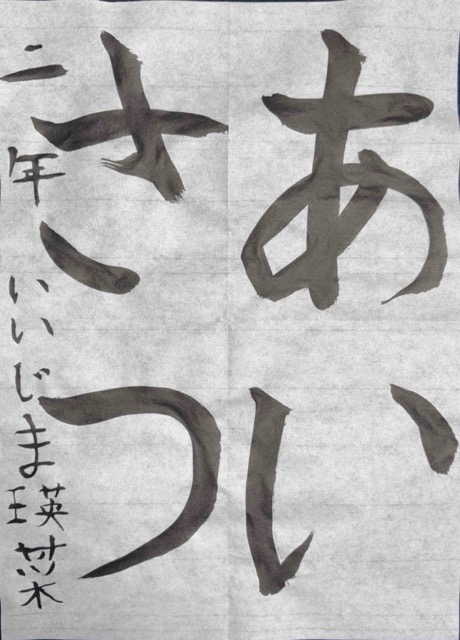 あい
さつ
二年 いいじま瑛菜